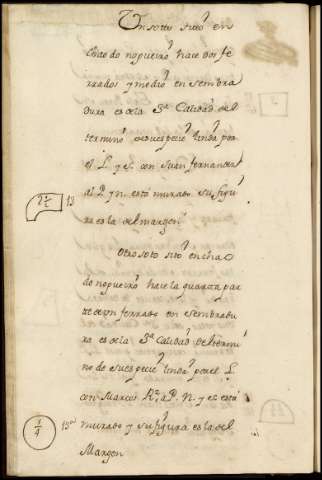 Un soto sito en
chao do nogueiro hace dos fe
rrados y medio en sembra
dura es de la 3ª Calidad del
termino de su especie linda por
el L. y S. con Juan fernandez
al P. y N. está murado su figu
2 1/2 13 ra es la del margen
Otro soto sito en cha o
do nogueiro hace la quarta par
te de un ferrado en sembradu
ra es de la 3ª Calidad del termi
no de su especie linda por el L.
con Marcos Rz. a P. N. y S. está
1/4 13 murado y su figura es la del
Margen